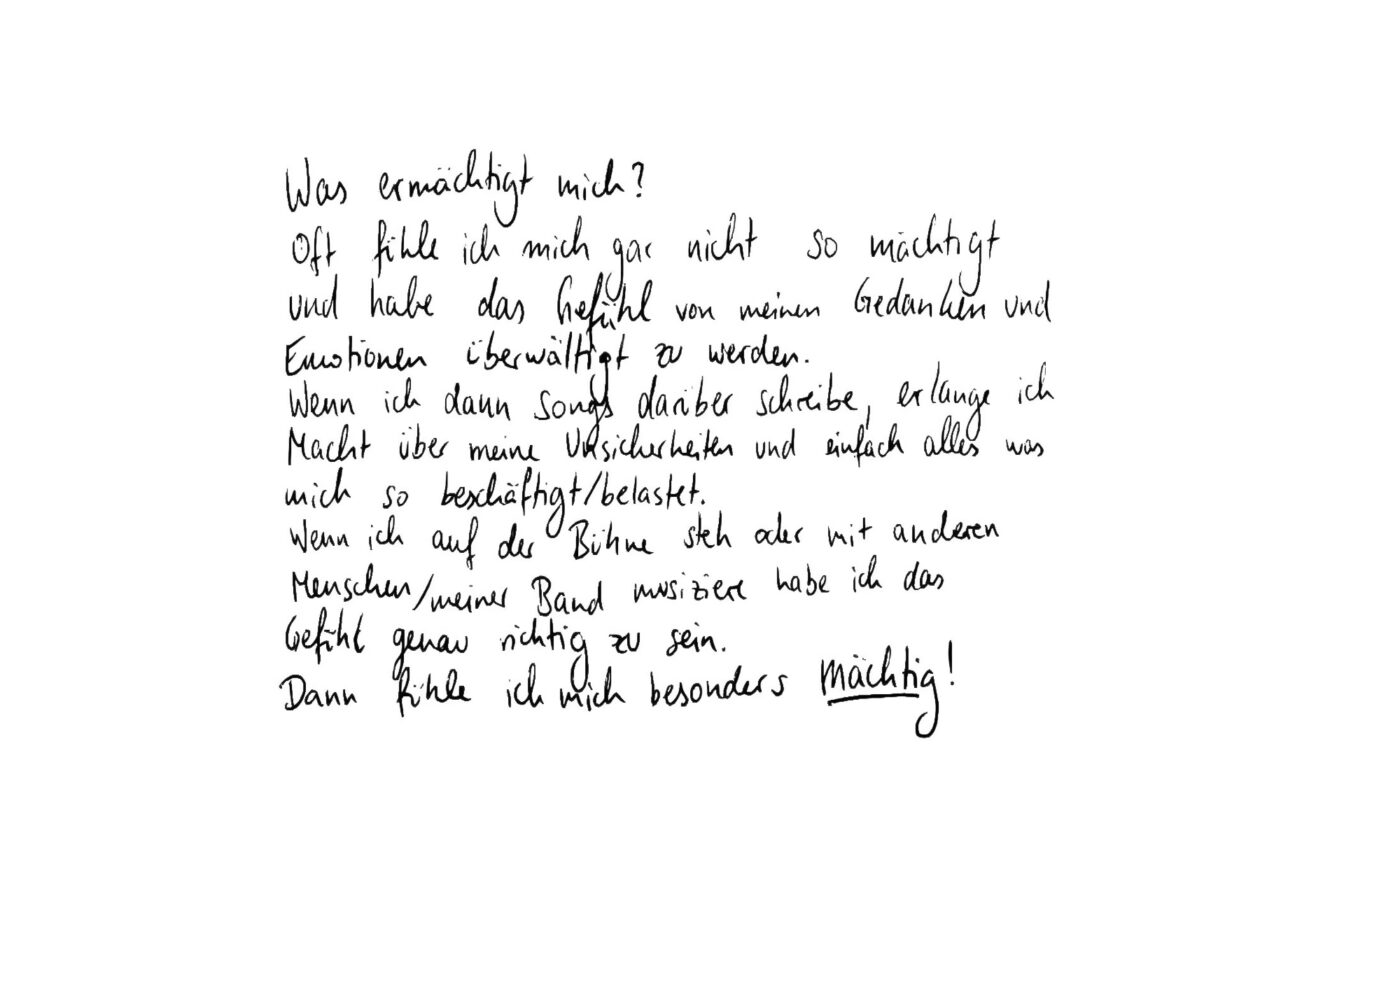 Was ermächtigt mich?
Oft fühle ich mich gar nicht so mächtigt
und habe das Gefühl von meinen Gedanken und
Emotionen überwältigt zu werden.
Wenn ich dann Songs darüber schreibe, erlange ich
Macht über meine Unsicherheiten und einfach alles was
mich so beschäftigt/belastet.
Wenn ich auf der Bühne steh oder mit anderen
Menschen/meiner Band musiziere habe ich das
Gefühl genau richtig zu sein.
Dann fühle ich mich besonders mächtig!